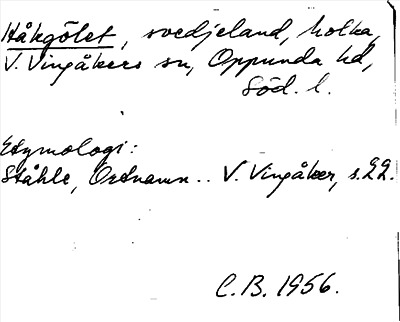 Håkgölet, svedjeland, holka,
V. Vingåkers sn, Oppunda hd,
Söd. l.
Etymologi:
Ståhle, Ortnamn.. V. Vingåker, s.22.
C.B. 1956.